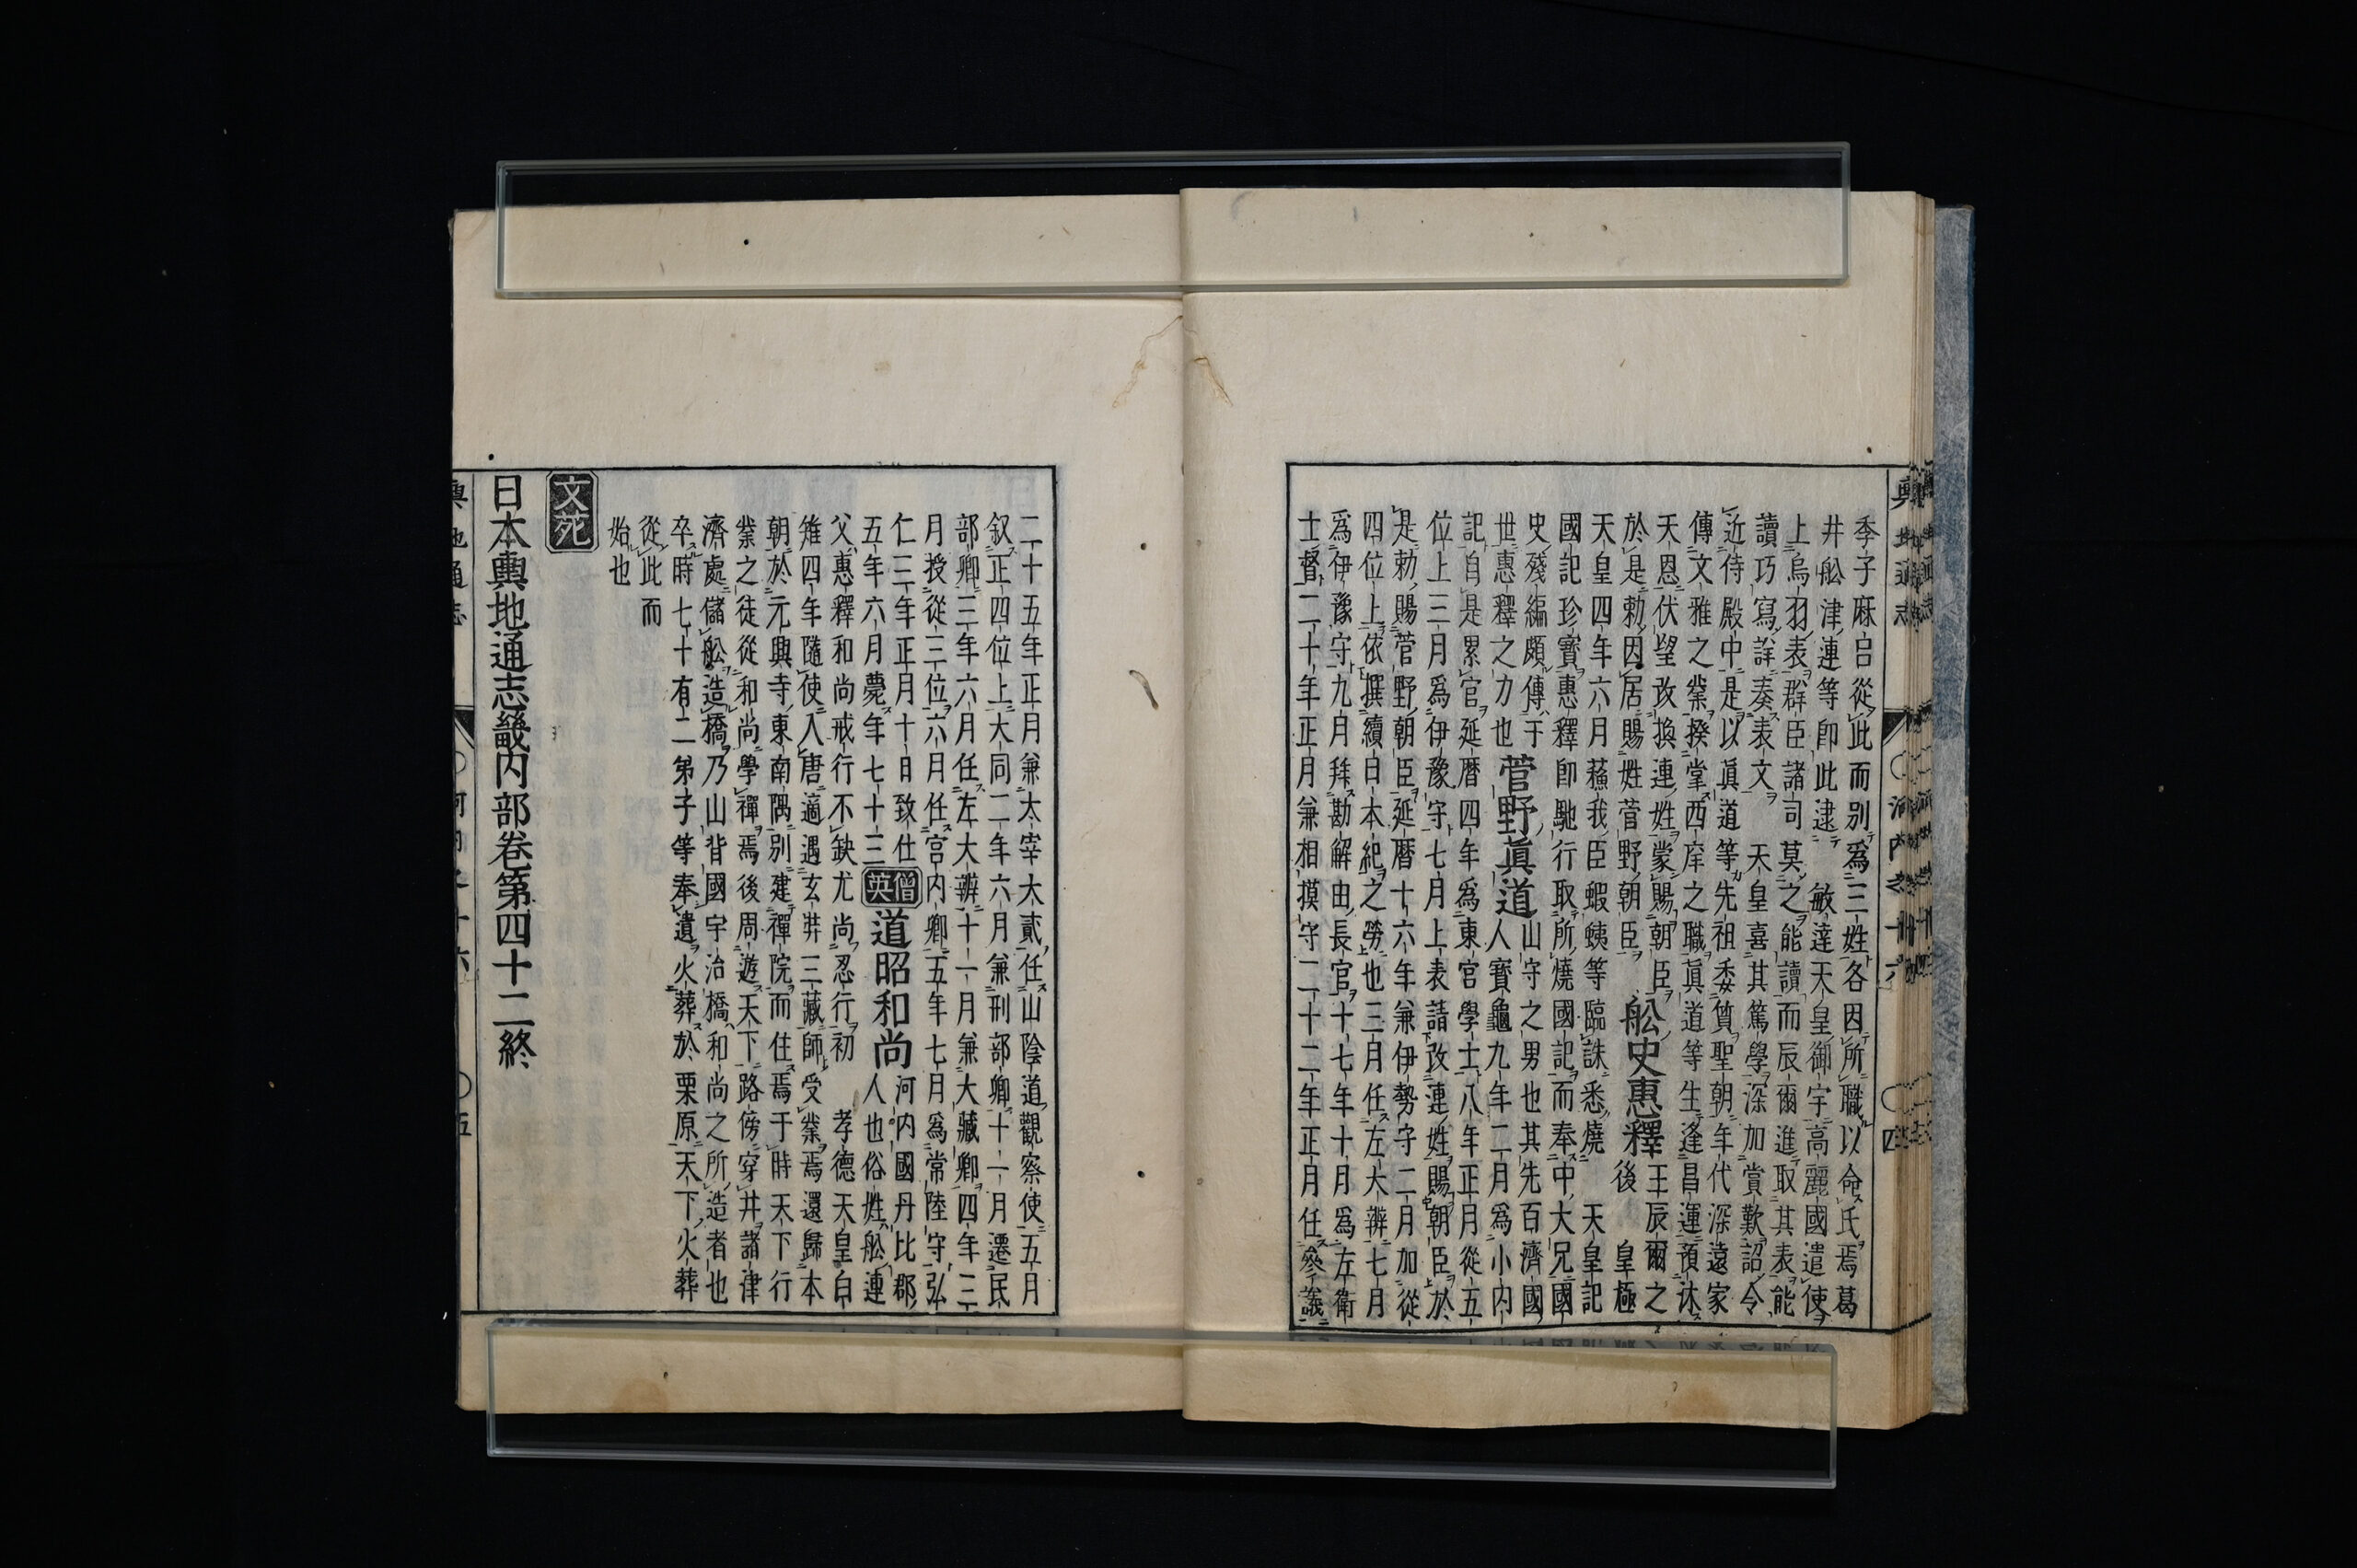 季子麻呂從此而別爲三姓各因所職以命氏焉葛
井舩津連等卽此逮　敏達天皇御宇高麗國遣使
上烏羽表群臣諸司莫之能讀而辰爾進取其表能
讀巧寫詳奏表文　天皇喜其篤學深加賞歎詔令
近侍殿中是以眞道等先祖委質聖朝年代深遠家
傳文雅之業揆掌西庠之職眞道等生逢昌運預沐
天恩伏望改換連姓蒙賜朝臣
於是勅因居賜姓菅野朝臣
舩史惠釋
王辰爾之
後　皇極
天皇四年六月蘓我臣蝦蛦等臨誅悉燒　天皇記
國記珍寶惠釋卽馳行取所燒國記而奉中大兄國
史殘編頗傳于
世惠釋之力也
菅野眞道
山守之男也其先百濟國
人寶龜九年二月爲小内
記自是累官延暦四年爲東宮學士八年正月從五
位上三月爲伊豫守七月上表請改連姓賜朝臣於
是勅賜菅野朝臣延暦十六年兼伊勢守二月加從
四位上依撰續日本紀之勞也三月任左大辨七月
爲伊豫守九月拜勘解由長官十七年十月爲左衛
士督二十年正月兼相摸守二十二年正月任參議
二十五年正月兼太宰大貳任山陰道觀察使五月
叙正四位上大同二年六月兼刑部卿十一月遷民
部卿三年六月任左大辨十一月兼大藏卿四年三
月授從三位六月任宮内卿五年七月爲常陸守弘
仁三年正月十日致仕
五年六月薨年七十三
僧英
道昭和尚
河内國丹比郡
人也俗姓舩連
父惠釋和尚戒行不缺尤尚忍行初　孝德天皇白
雉四年隨使入唐適遇玄弉三藏師受業焉還歸本
朝於元興寺東南隅別建禪院而住焉于時天下行
業之徒從和尚學禪焉後周遊天下路傍穿井諸津
濟處儲舩造橋乃山背國宇治橋和尚之所造者也
卒時七十有二弟子等奉遺火葬於栗原天下火葬
從此而
始也
文苑
日本輿地通志畿内部卷第四十二終